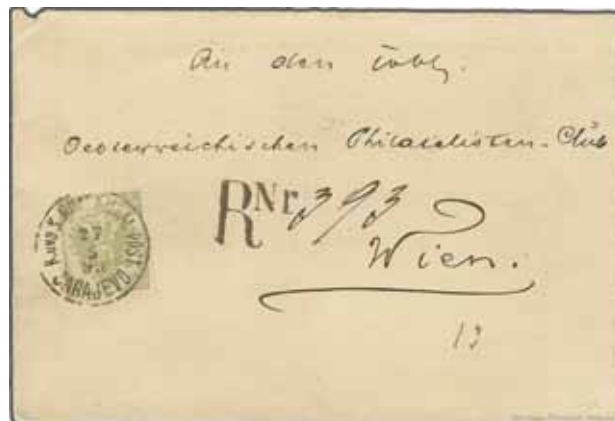 An den löbl.
Oesterreichischen Philatelisten-Club
RNr. 393
Wien.
SARAJEVO
13